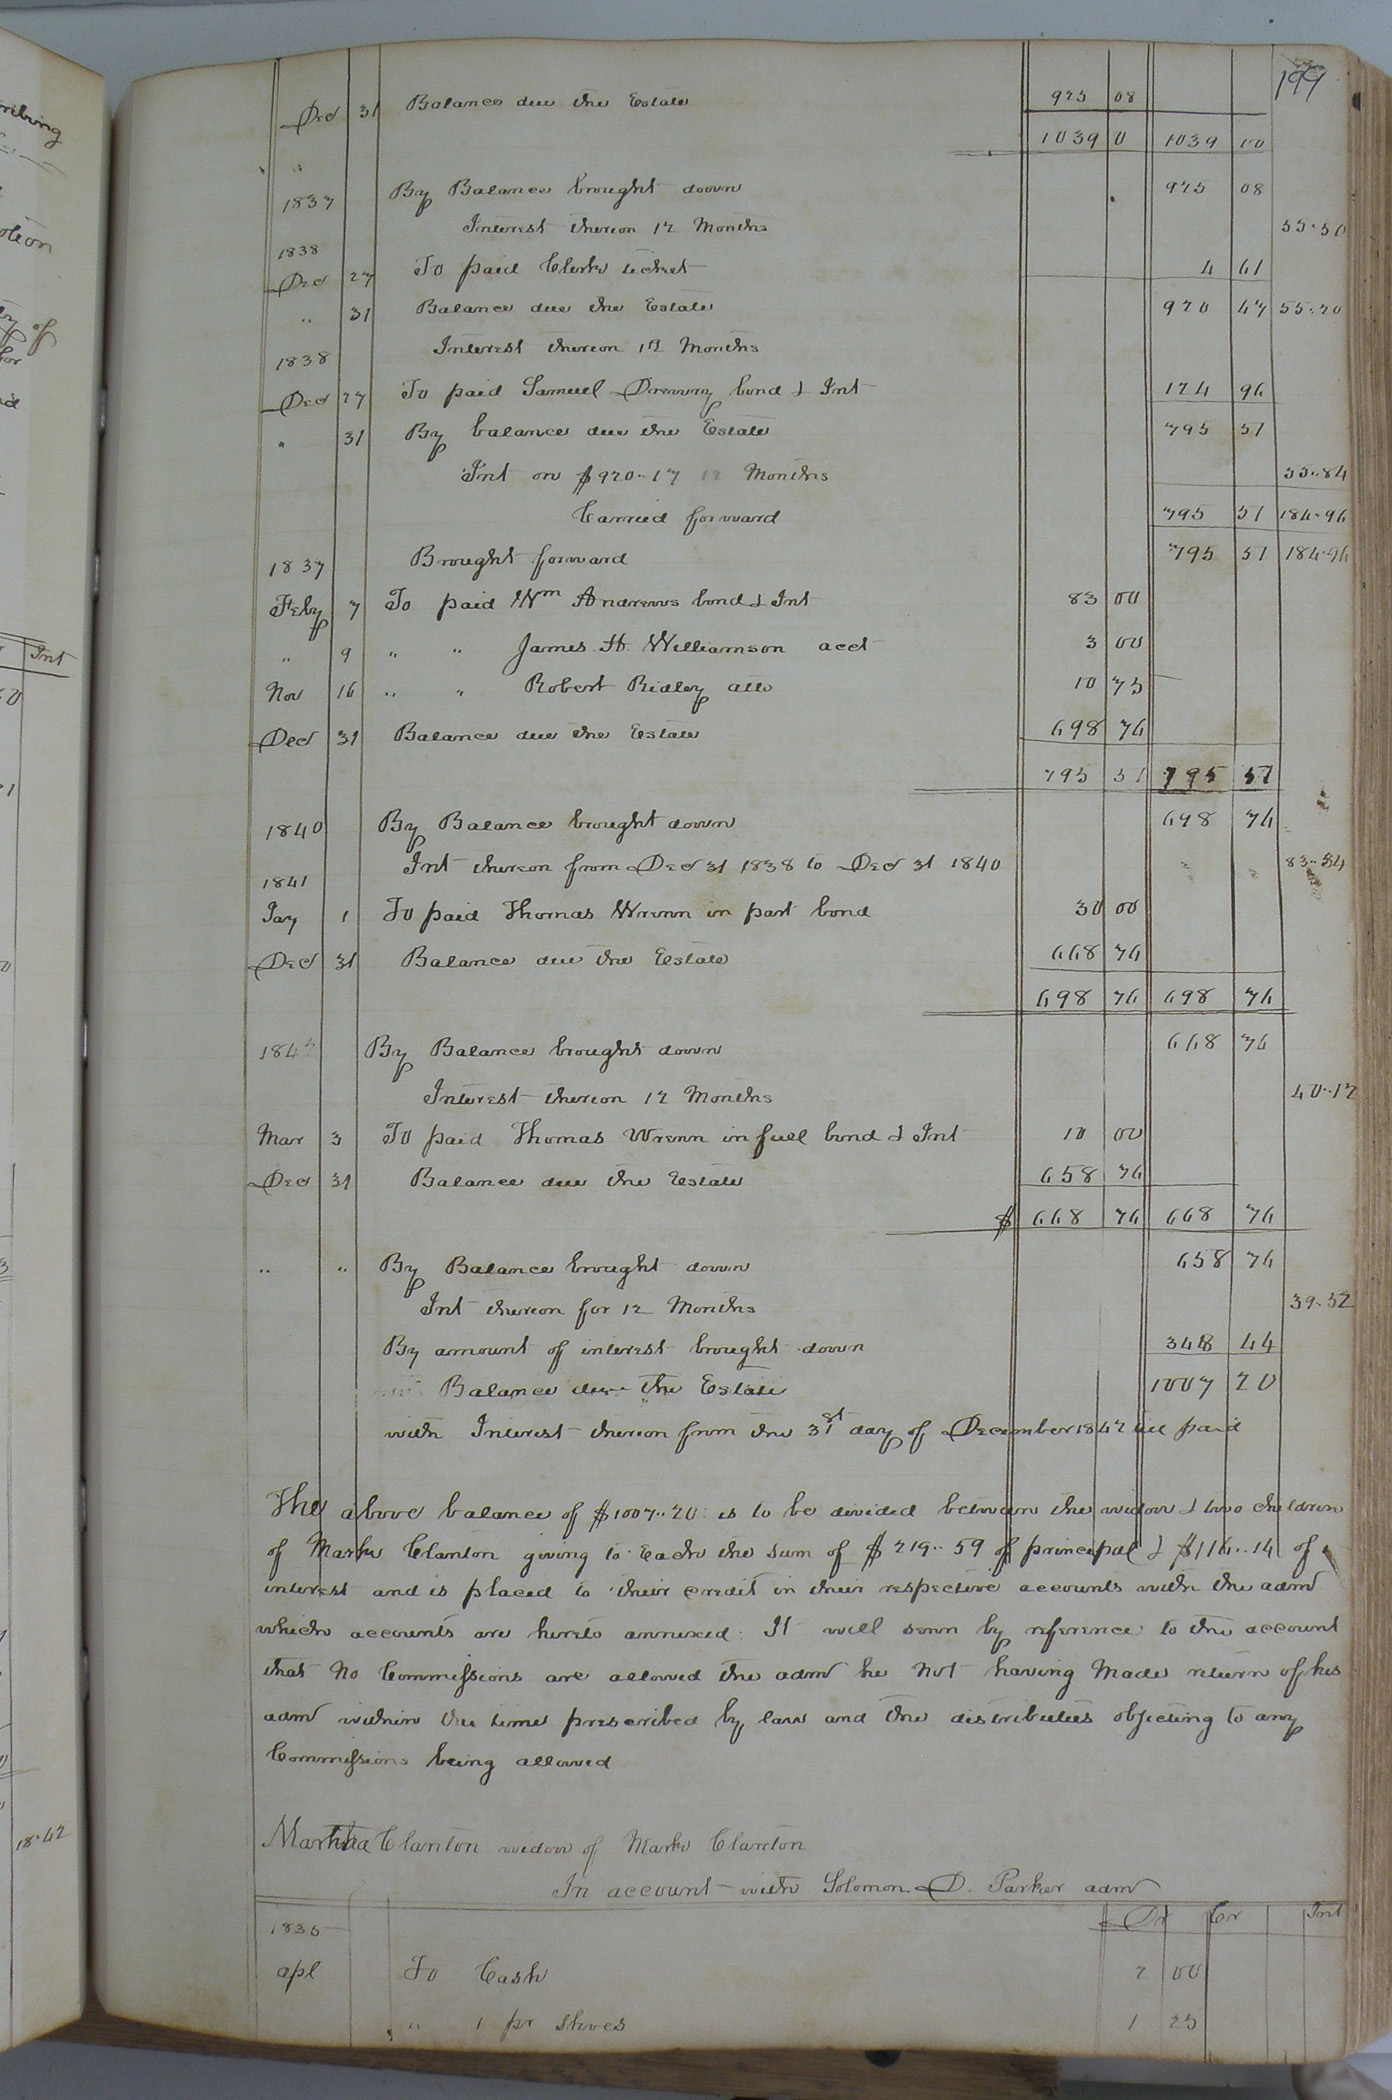 199
Dec 31 Balance due the Estate 925 08
1039 0 1039 10
1837 By Balance brought down 925 08
Interest thereon 12 Months 55..50
1838
Dec 27 To paid Clerks ticket 4 61
" 31 Balance due the Estate 920 47 55..20
1838 Interest thereon 12 Months
Dec 27 To paid Samuel Drewry bond & Int 124 96
" 31 By balance due the Estate 795 51
Int on $920..17 12 Months 55..84
Carried forward 795 51 184..96
1837 Brought forward 795 51 184..96
Feby 7 To paid Wm Andrews bond & Int 83 00
" 9 " " James H. Williamson acct 3 00
Nov 16 " " Robert Ridley atto 10 75
Dec 31 Balance due the Estate 698 76
795 51 795 51
1840 By Balance brought down 698 76
Int thereon from Dec 31 1838 to Dec 31 1840 83..84
1841
Jay 1 To paid Thomas Wrenn in part bond 30 00
Dec 31 Balance due the Estate 668 76
698 76 698 76
1842 By Balance brought down 668 76
Interest thereon 12 Months 40..12
Mar 3 To paid Thomas Wrenn in full bond & Int 10 00
Dec 31 Balance due the Estate 658 76
$ 668 76 668 76
" " By Balance brought down 658 76
Int thereon for 12 Months 39..52
By amount of interest brought down 348 44
Balance due the Estate 1007 20
with Interest thereon from the 31st day of December 1842 till paid
The above balance of $1007..20 is to be divided between the widow & two children
of Marks Clanton giving to Each the sum of $219..59 of principal & $116..14 of
interest and is placed to their credit in their respective accounts with the admr
which accounts are hereto annexed. It will seen by reference to the account
that No Commissions are allowed the admr he Not having Made return of his
admr within the time prescribed by law and the distributees objecting to any
Commissions being allowed
Martha Clanton widow of Marks Clanton
In account with Solomon D. Parker admr
1835 Dr Cr Int
apl To Cash 2 00
" 1 pr Shoes 1 25